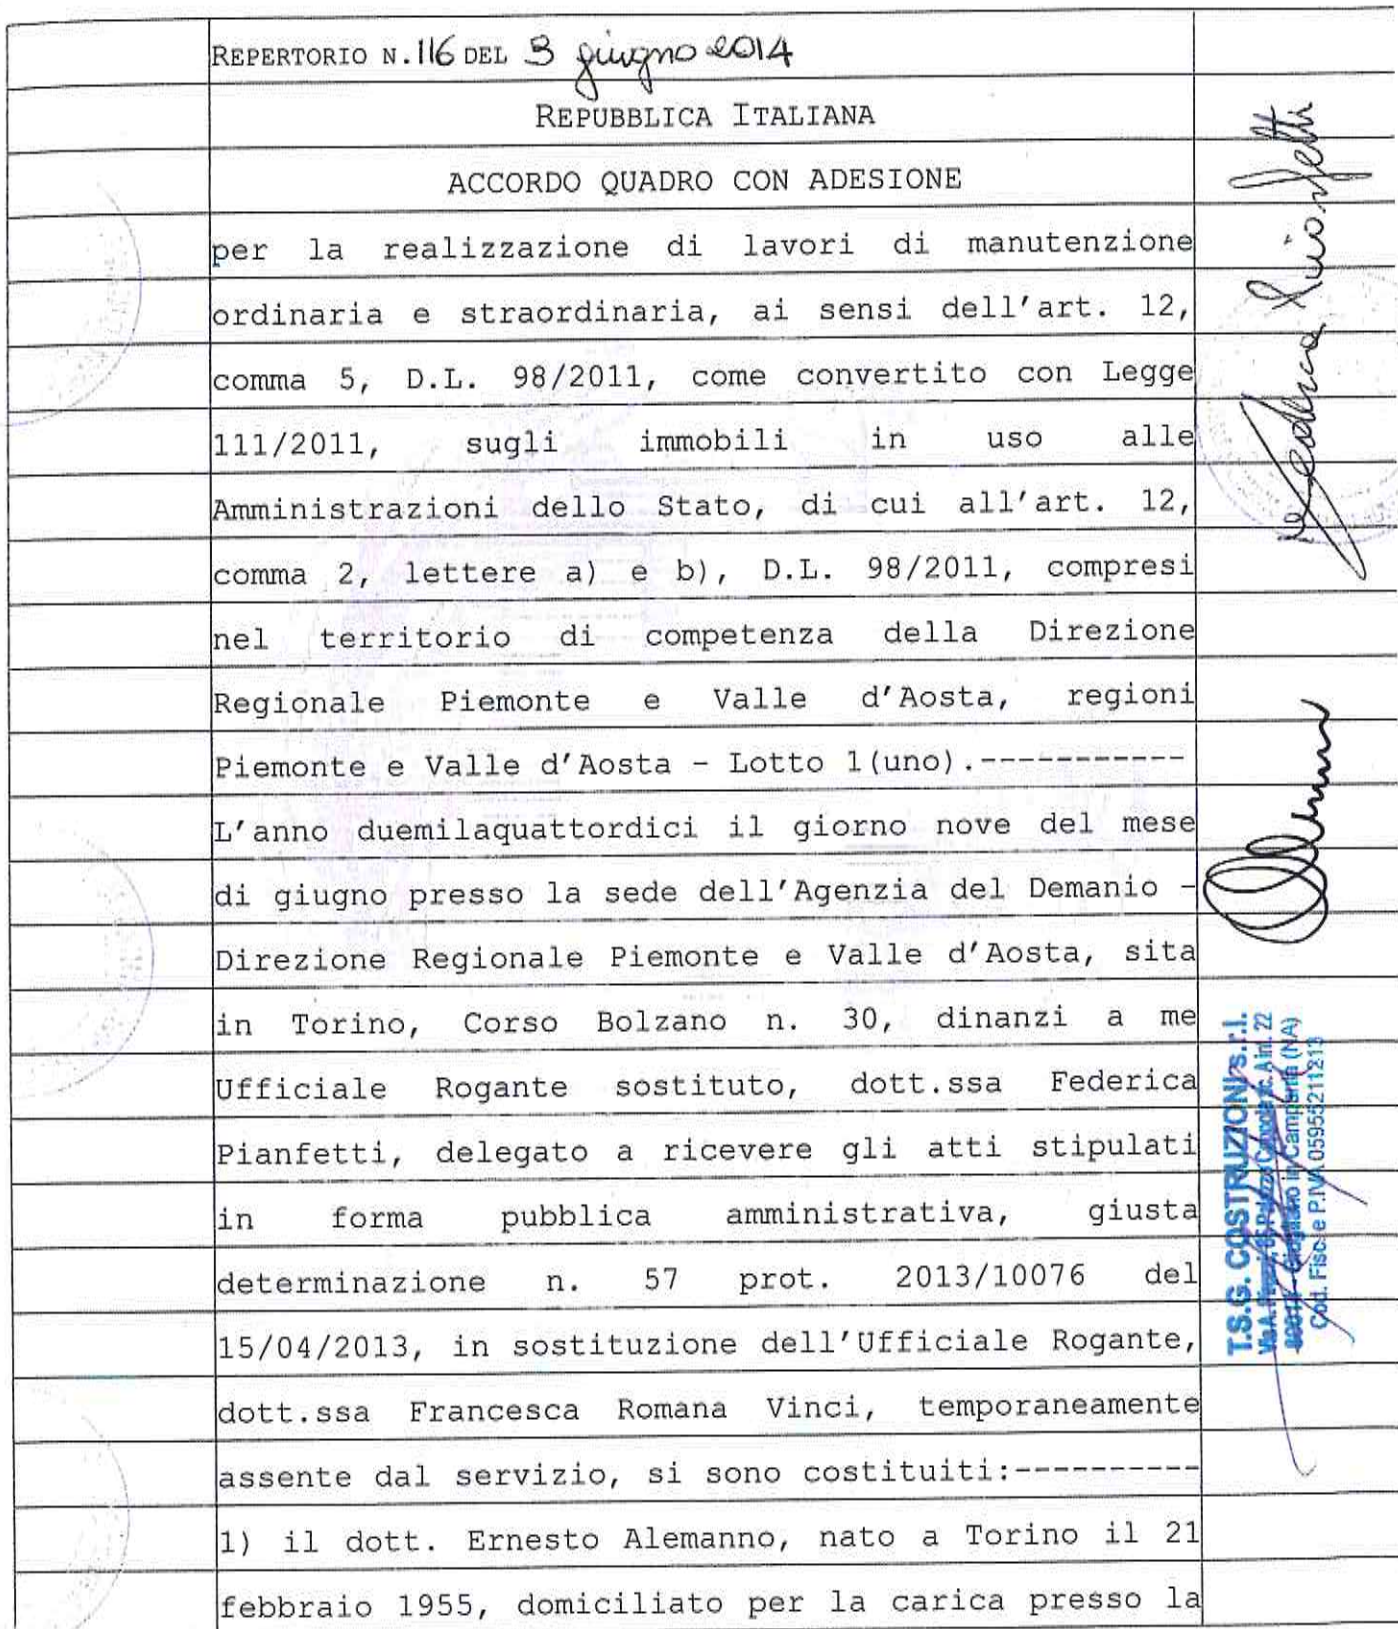 REPERTORIO N. 116 DEL 9 giugno 2014
REPUBBLICA ITALIANA
ACCORDO QUADRO CON ADESIONE
per la realizzazione di lavori di manutenzione
ordinaria e straordinaria, ai sensi dell'art. 12,
comma 5, D.L. 98/2011, come convertito con Legge
111/2011, sugli immobili in uso alle
Amministrazioni dello Stato, di cui all'art. 12,
comma 2, lettere a) e b), D.L. 98/2011, compresi
nel territorio di competenza della Direzione
Regionale Piemonte e Valle d'Aosta, regioni
Piemonte e Valle d'Aosta - Lotto 1(uno).-----------
L'anno duemilaquattordici il giorno nove del mese
di giugno presso la sede dell'Agenzia del Demanio -
Direzione Regionale Piemonte e Valle d'Aosta, sita
in Torino, Corso Bolzano n. 30, dinanzi a me
Ufficiale Rogante sostituto, dott.ssa Federica
Pianfetti, delegato a ricevere gli atti stipulati
in forma pubblica amministrativa, giusta
determinazione n. 57 prot. 2013/10076 del
15/04/2013, in sostituzione dell'Ufficiale Rogante,
dott.ssa Francesca Romana Vinci, temporaneamente
assente dal servizio, si sono costituiti:----------
1) il dott. Ernesto Alemanno, nato a Torino il 21
febbraio 1955, domiciliato per la carica presso la
Federica Pianfetti
T.S.G. COSTRUZIONI s.r.l.
Via A. Palazzo int. 22
Giugliano in Campania (NA)
Cod. Fisc. e P.IVA 05955211213